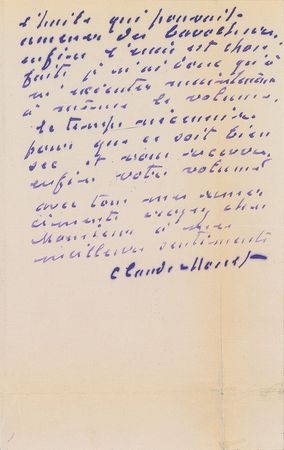 l'huile qui pouvait
amener des
enfin l'essai est chose
faite je n'ai donc qu'à
m'exécuter maintenant
à même le volume.
le temps nécessaire
pour que ce soit bien
sec et vous recevrez
enfin votre volume
avec tous mes remer
ciements croyez cher
Monsieur à mes
meilleurs sentiments
Claude Monet